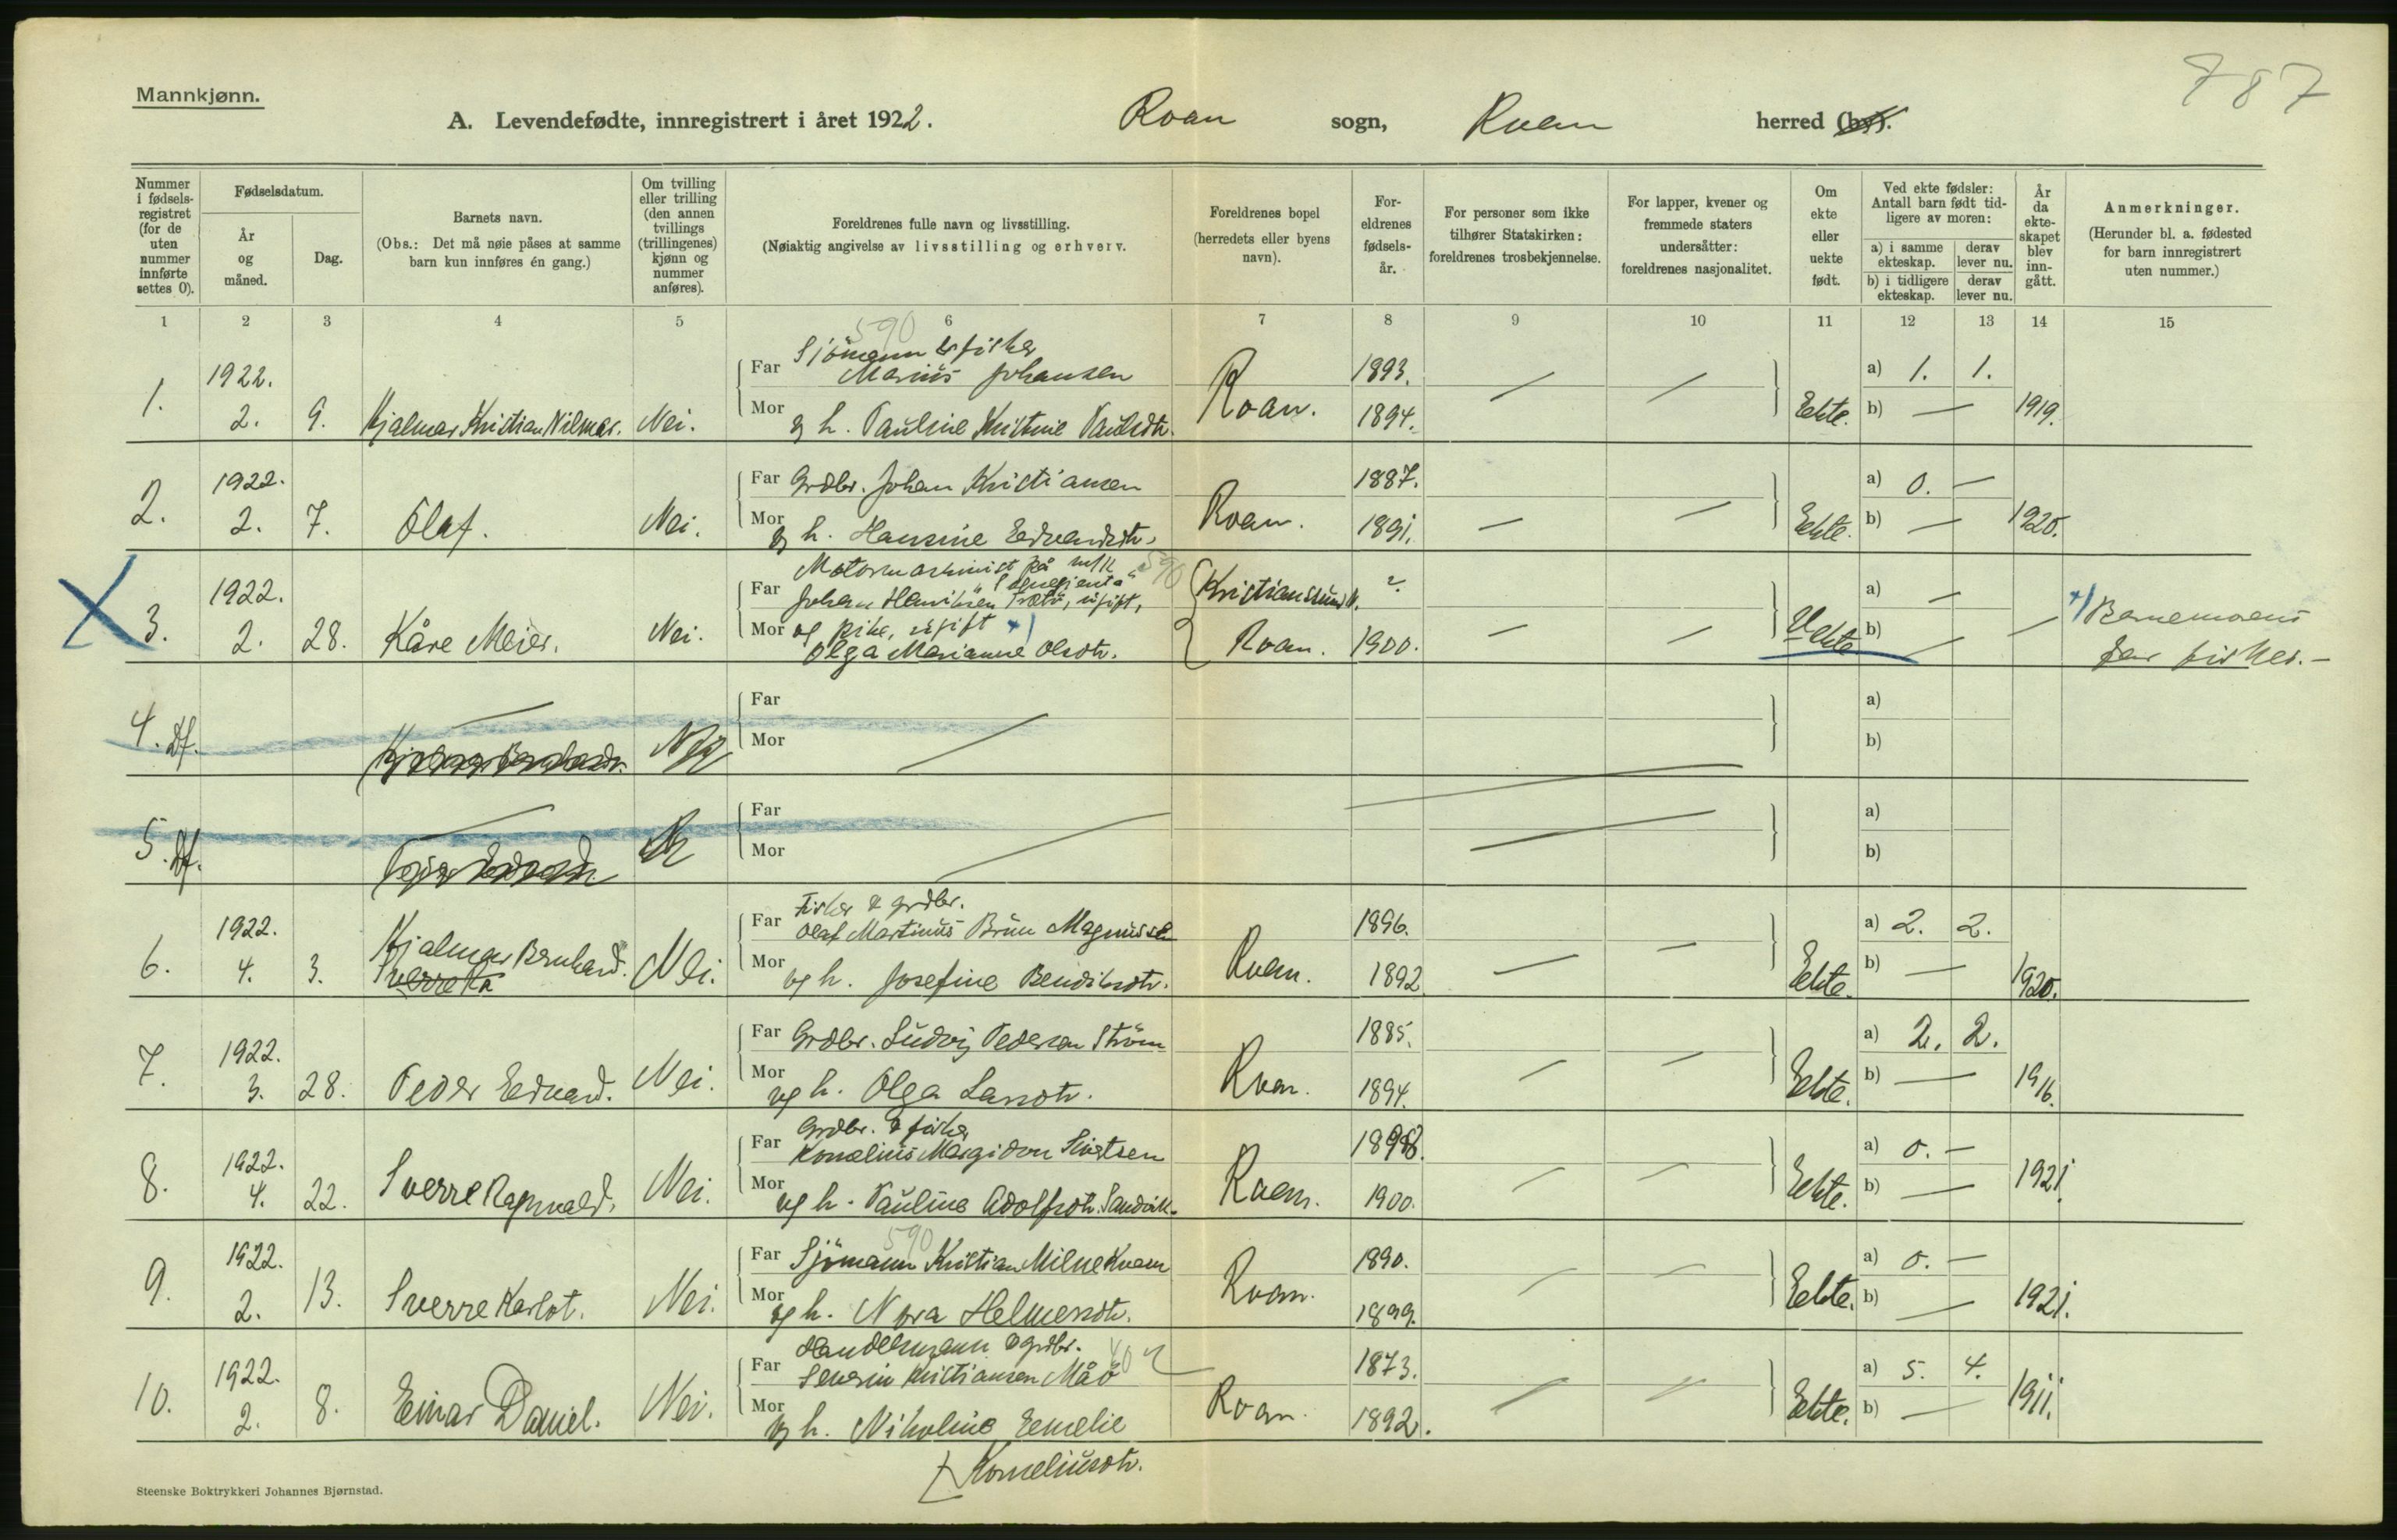 787
Mannkjønn.
A. Levendefødte, innregistrert i året 1922. Roan sogn, Roan herred (by).
Nummer i fødsels-registret (for de uten nummer innførte settes 0).
Fødselsdatum.
År og måned.
Dag.
Barnets navn.
(Obs.: Det må nøie påses at samme barn kun innføres én gang.)
Om tvilling eller trilling (den annen tvillings (trillingenes) kjønn og nummer anføres).
Foreldrenes fulle navn og livsstilling.
(Nøiaktig angivelse av livsstilling og erhverv.
Foreldrenes bopel (herredets eller byens navn).
For-eldrenes fødsels-år.
For personer som ikke tilhører Statskirken: foreldrenes trosbekjennelse.
For lapper, kvener og fremmede staters undersåtter: foreldrenes nasjonalitet.
Om ekte eller uekte født.
Ved ekte fødsler: Antall barn født tid-ligere av moren:
a) i samme ekteskap. derav lever nu.
b) i tidligere ekteskap. derav lever nu.
År da ekte-skapet blev inn-gått.
Anmerkninger.
(Herunder bl. a. fødested for barn innregistrert uten nummer.)
1 2 3 4 5 6 7 8 9 10 11 12 13 14 15
590
Sjömann & fisker
1922. Far Marius Johansen 1893. a) 1. 1.
1. 2. 9. Hjalmar Kristian Vilmar. Nei. Mor og h. Pauline Kristine Paulsdtr. Roan. 1894. Ekte. b) — 1919.
1922. Far Grdbr. Johan Kristiansen 1887. a) 0. —
2. 2. 7. Olaf. Nei. Mor og h. Hansine Edvardsdtr. Roan. 1891. Ekte. b) — 1920.
Motormaskinist på m/k 590
1922. Far Johan Henriksen, ugift, Kristiansund N. ? a) —
3. 2. 28. Kåre Meier. Nei. Mor og pike, ugift x) Roan. 1900. Uekte b) — — x) Barnemorens
Olga Marianne Olsdtr. far fisker. —
4. Df. Far a)
Mor b)
5. Df. Far a)
Mor b)
Fisker & grdbr.
1922. Hjalmar Bernhard. Far Olaf Martinus Brun Magnussen 1896. a) 2. 2.
6. 4. 3. Nei. Mor og h. Josefine Bendiksdtr. Roan. 1892. Ekte. b) — 1920.
1922. Far Grdbr. Ludvig Pedersen Ström 1885. a) 2. 2.
7. 3. 28. Peder Edvard. Nei. Mor og h. Olga Larsdtr. Roan. 1894. Ekte. b) — 1916.
Grdbr. & fisker
1922. Far Kornelius Margidon Sivertsen a) 0. —
8. 4. 22. Sverre Ragnvald. Nei. Mor og h. Pauline Adolfsdtr. Sandvik. Roan. 1900. Ekte. b) — 1921.
590
1922. Far Sjömann Kristian Milne 1890. a) 0. —
9. 2. 13. Sverre Karlot. Nei. Mor og h. Nora Helmersdtr. Roan. 1899. Ekte. b) — 1921.
Handelsmann & grdbr.
1922. Far Severin Kristiansen Måö 1873. a) 5. 4.
10. 2. 8. Einar Daniel. Nei. Mor og h. Nikoline Emelie Roan. 1892. Ekte. b) — 1911.
Korneliusdtr.
Steenske Boktrykkeri Johannes Bjørnstad.